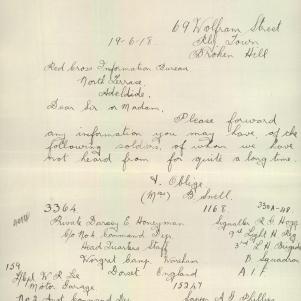 69 Wolfram Street
19-6-18 Rly Town
Broken Hill
Red Cross Information Bureau
North Terrace
Adelaide.
Dear Sir or Madam,
Please forward
any information you may have, of the
following soldiers, of whom we have
not heard from for quite a long time.
& Oblige.
(Mrs) B. Snell.
3364 1168
Private Darcey E Honeyman Signaller R G Hopp
C/o No 2 Command Dep 9th Light H Reg
Head Quarters Staff 3rd L H Brigade
Wingret Camp Wareham B Squadron
159 Dorset England A I F
W R Lee 15247
Motor Garage
No 2 Command Dep